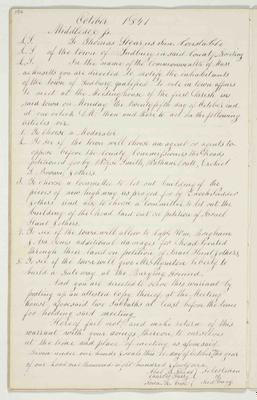 October 1841
Middlesex Ss.
L.S. To Thomas Stearns Constable
L.S. of the town of Sudbury in said County Greeting
L.S. In the name of the Commonwealth of Mass
achusetts you are directed to notify the inhabitants
of the town of Sudbury, qualified to vote in town affairs
to meet at the Meetinghouse of the first Parish in
said town on Monday the twenty fifth day of October inst
at one o'clock P.M. then and there to act on the following
articles viz.
1. To choose a Moderator.
2. To see if the town will choose an agent or agents to
oppose before the County Commissioners the Roads
petitioned for by Smith, Ezekiel
others.
3. To choose a Committee to let out building of the
pieces of new highway as prayed for by
others and also to choose a Committee to let out the
building of the Road laid out on petition of Israel
Hunt & others.
4. To see if the town will allow to Capt. Wm.
& additional damages for Road located
through their land on petition of Israel Hunt & others.
5. To see if the town will give liberty to
build a Gateway at the Burying Ground.
And you are directed to serve this warrant by
posting up an attested copy thereof at the Meeting
house aforesaid two Sabbaths at least before the time
for holding said meeting.
Hereof fail not and make return of this
warrant with your doings thereon to ourselves
at the time and place of meeting as aforesaid.
Given under our hands & seals this day of October the year
of our Lord one thousand eight hundred & forty one.
Selectmen
of
Sudbury